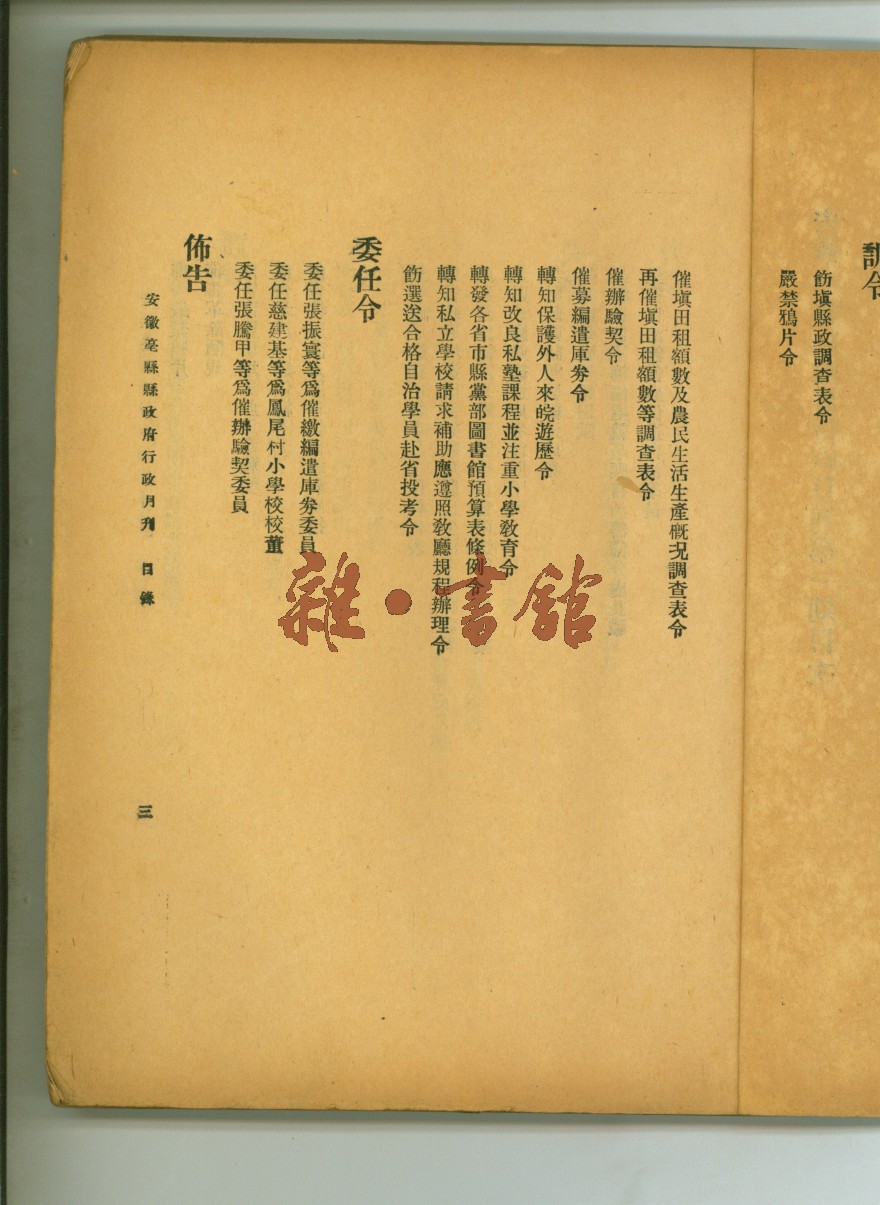 訓令
飭塡縣政調查表令
嚴禁鴉片令
催塡田租額數及農民生活生產概况調查表令
再催塡田租額數等調查表令
催辦驗契令
催募編遣庫劵令
轉知保護外人來皖遊歷令
轉知改良私塾課程並注重小學敎育令
轉發各省市縣黨部圖書館預算表條例令
轉知私立學校請求補助應遵照敎廳規程辦理令
飭選送合格自治學員赴省投考令
委任令
委任張振寰等爲催繳編遣庫劵委員
委任慈建基等爲鳳尾村小學校校董
委任張騰甲等爲催辦驗契委員
佈告
安徽亳縣縣政府行政月刋 目錄
三
雜·書館